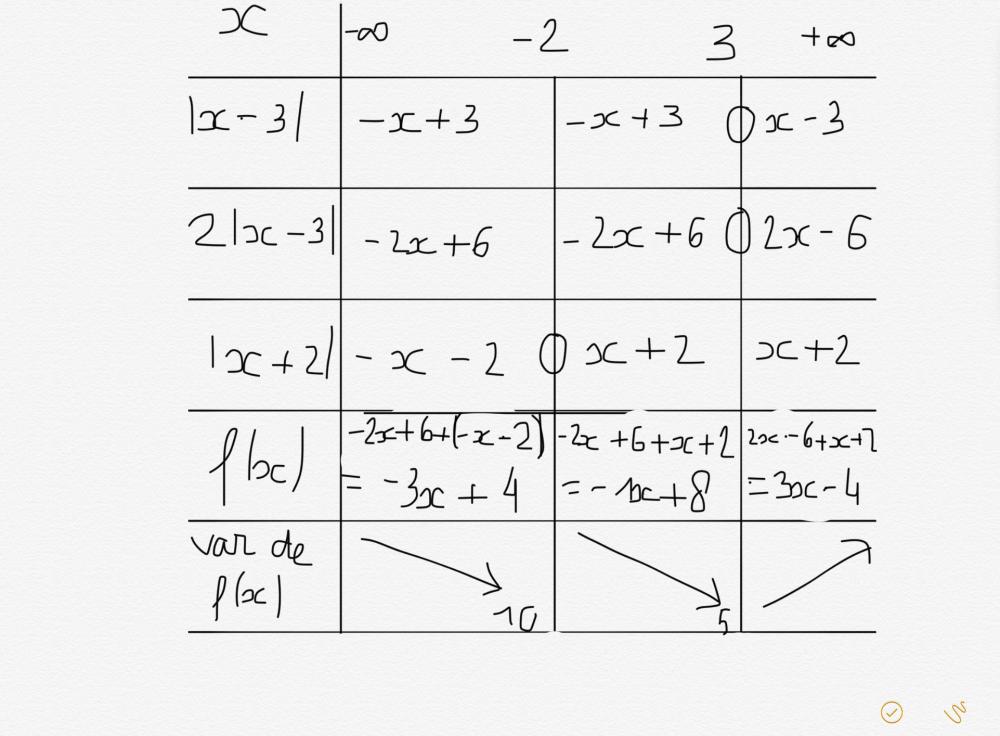 x -∞ -2 3 +∞
|x-3| -x+3 -x+3 0 x-3
2|x-3| -2x+6 -2x+6 0 2x-6
|x+2| -x-2 0 x+2 x+2
f(x) -2x+6+(-x-2) -2x+6+x+2 2x-6+x+2
= -3x+4 =-1x+8 =3x-4
var de
f(x) 10 5